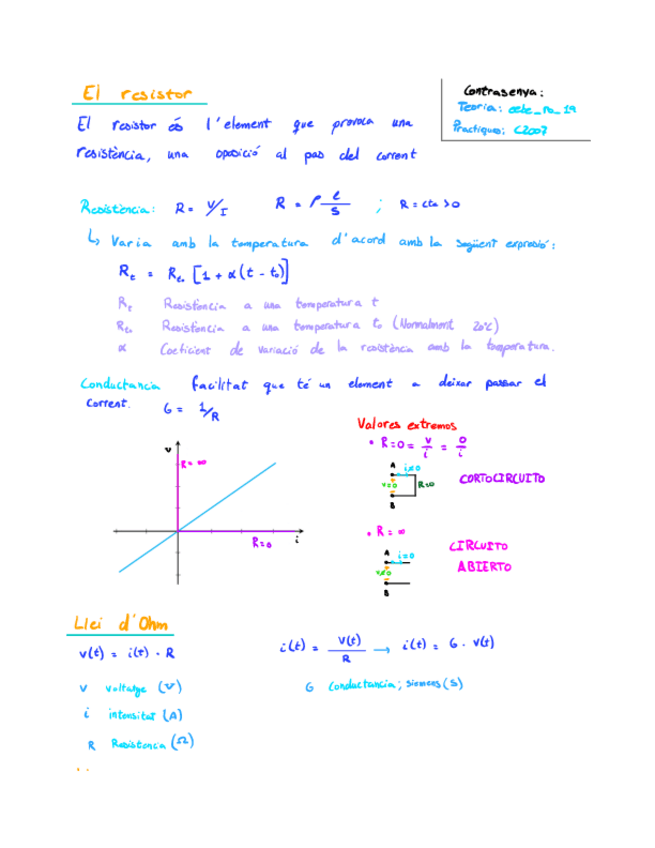 El resistor
Contrasenya:
Teoria: cebe_ro_19
Practiques: C2007
El resistor és l'element que provoca una
resistència, una oposició al pas del corrent
Resistència: R = V/I R = ρ l/S ; R = cta > 0
↳ Varia amb la temperatura d'acord amb la següent expresió:
Rt = Rto [1 + α (t - to)]
Rt Resistència a una temperatura t
Rto Resistència a una temperatura to (Normalment 20°C)
α Coeficient de variació de la resistència amb la temperatura.
Conductancia facilitat que té un element a deixar passar el
corrent. G = 1/R
Valores extremos
• R=0 = v/i = 0/i
A
i≠0
v=0
R=0
B
CORTOCIRCUITO
v
R = ∞
R=0
i
• R = ∞
A
i=0
v≠0
B
CIRCUITO
ABIERTO
Llei d'Ohm
v(t) = i(t) · R
i(t) = v(t)/R → i(t) = G · v(t)
v voltatge (V)
G Conductancia; siemens (S)
i intensitat (A)
R Resistencia (Ω)